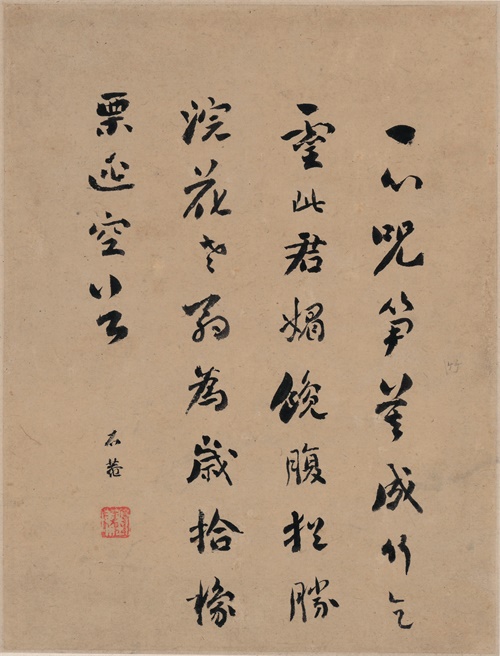 一心咒筍莫成竹乞
靈此君媚饞腹猶勝
浣花老翁為歲拾橡
栗空谷
石菴